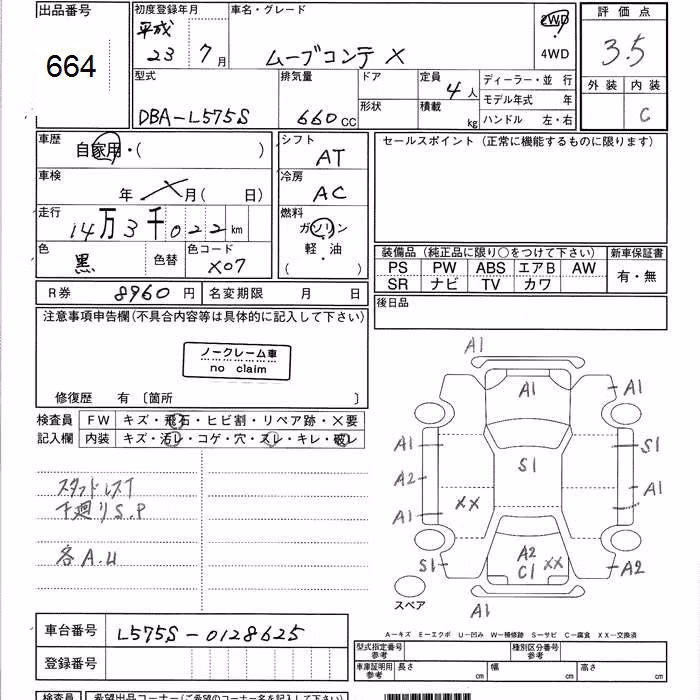 出品番号
664
初度登録年月
平成
23 7月
車名・グレード
ムーブコンテ X
2WD
4WD
評価点
3.5
外装 内装
C
型式
DBA-L575S
排気量
660cc
ドア
形状
定員
4人
積載
kg
ディーラー・並 行
モデル年式 年
ハンドル 左・右
車歴
自家用・( )
車検
年 月( 日)
走行
14万3千022km
色
黒
色替
色コード
X07
シフト
AT
冷房
AC
燃料
ガソリン
軽・油
( )
セールスポイント(正常に機能するものに限ります)
装備品(純正品に限り○をつけて下さい)
PS PW ABS エアB AW
SR ナビ TV カワ
新車保証書
有・無
R券 8960円
名変期限 月 日
後日品
注意事項申告欄(不具合内容等は具体的に記入して下さい)
ノークレーム車
no claim
修復歴 有 〔箇所 〕
検査員
記入欄
FW キズ・飛石・ヒビ割・リペア跡・×要
内装 キズ・汚レ・コゲ・穴・スレ・キレ・破レ
スタッドレスT
下廻りS.P
各A.U
A1
A1
A1
A1
S1
S1
A2
A1
XX
A1
S1
A2
C1
XX
A2
A1
スペア
A-キズ E-エクボ U-凹み W-補修跡 S-サビ C-腐食 XX-交換済
車台番号
L575S-0128625
登録番号
型式指定番号
参考
種別区分番号
参考
車庫証明用
参考
長さ cm
幅 cm
高さ cm
検査員
希望出品コーナー(ご希望のコーナー名を記入下さい)